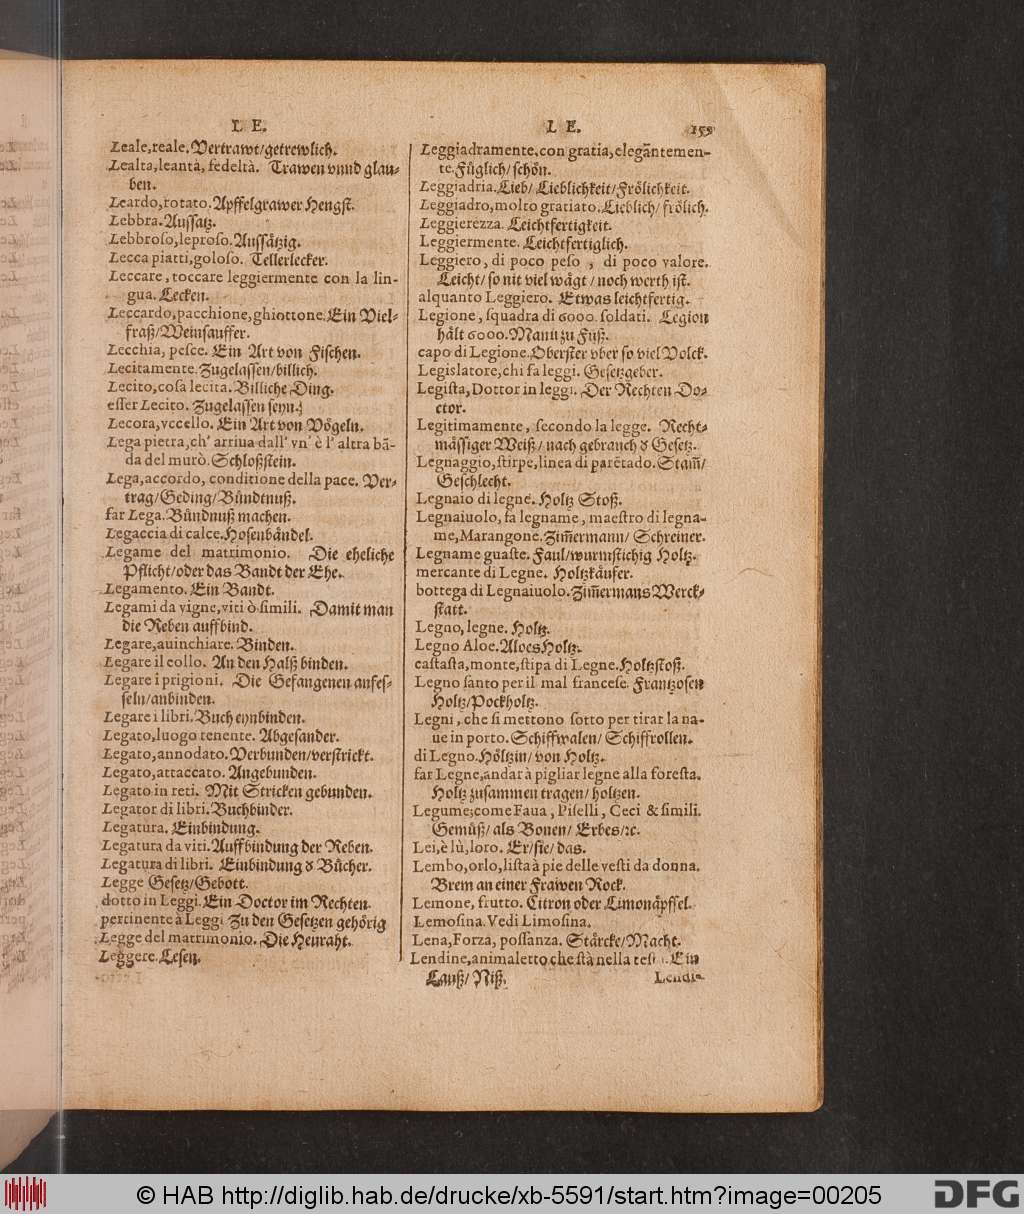 L E.
Leale,reale. Vertrawt/getrewlich.
Lealta,leantà, fedeltà. Trawen vnnd glau-
ben.
Leardo,rotato. Apffelgrawer Hengst.
Lebbra. Aussatz.
Lebbroso,leproso. Aussåtzig.
Lecca piatti,goloso. Tellerlecker.
Leccare, toccare leggiermente con la lin-
gua. Lecken.
Leccardo,pacchione,ghiottone. Ein Viel-
fraß/Weinsauffer.
Lecchia, pesce. Ein Art von Fischen.
Lecitamente. Zugelassen/billich.
Lecito,cosa lecita. Billiche Ding.
esser Lecito. Zugelassen seyn.
Lecora,vccello. Ein Art von Vögeln.
Lega pietra,ch' arriua dall' vn' è l' altra bā-
da del murò. Schloßstein.
Lega,accordo, conditione della pace. Ver-
trag/Geding/Bůndtnuß.
far Lega. Bůndnuß machen.
Legaccia di calce. Hosenbåndel.
Legame del matrimonio. Die eheliche
Pflicht/oder das Bandt der Ehe.
Legamento. Ein Bandt.
Legami da vigne,viti ò simili. Damit man
die Reben auffbind.
Legare,auinchiare. Binden.
Legare il collo. An den Halß binden.
Legare i prigioni. Die Gefangenen anfes-
seln/anbinden.
Legare i libri. Buch eynbinden.
Legato,luogo tenente. Abgesander.
Legato,annodato. Verbunden/verstrickt.
Legato,attaccato. Angebunden.
Legato in reti. Mit Stricken gebunden.
Legator di libri. Buchbinder.
Legatura. Einbindung.
Legatura da viti. Auffbindung der Reben.
Legatura di libri. Einbindung d Bůcher.
Legge Gesetz/Gebott.
dotto in Leggi. Ein Doctor im Rechten.
pertinente à Leggi Zu den Gesetzen gehörig
Legge del matrimonio. Die Heuraht.
Leggere. Lesen.
L E. 159
Leggiadramente,con gratia,elegāntemen-
te. Fůglich/schön.
Leggiadria. Lieb/Lieblichkeit/Frölichkeit.
Leggiadro,molto gratiato. Lieblich/frölich.
Leggierezza. Leichtfertigkeit.
Leggiermente. Leichtfertiglich.
Leggiero, di poco peso, di poco valore.
Leicht/so nit viel wågt/noch werth ist.
alquanto Leggiero. Etwas leichtfertig.
Legione, squadra di 6000. soldati. Legion
hålt 6000. Mann zu Fůß.
capo di Legione. Oberster vber so viel Volck.
Legislatore,chi fa leggi. Gesetzgeber.
Legista,Dottor in leggi. Der Rechten Do-
ctor.
Legitimamente, secondo la legge. Recht-
måssiger Weiß/nach gebrauch d Gesetz.
Legnaggio,stirpe,linea di parētado. Stam̄/
Geschlecht.
Legnaio di legne. Holtz Stoß.
Legnaiuolo,fa legname, maestro di legna-
me,Marangone. Zim̄ermann/Schreiner.
Legname guaste. Faul/wurmstichig Holtz.
mercante di Legne. Holtzkåufer.
bottega di Legnaiuolo. Zim̄ermans Werck-
statt.
Legno,legne. Holtz.
Legno Aloe. Aloes Holtz.
castasta,monte,stipa di Legne. Holtzstoß.
Legno santo per il mal francese. Frantzosen
Holtz/Pockholtz.
Legni, che si mettono sotto per tirar la na-
ue in porto. Schiffwalen/Schiffrollen.
di Legno. Höltzin/von Holtz.
far Legne,andar à pigliar legne alla foresta.
Holtz zusammen tragen/holtzen.
Legume;come Faua, Piselli, Ceci & simili.
Gemůß/als Bonen/Erbes/ꝛc.
Lei,è lù,loro. Er/sie/das.
Lembo,orlo,lista à pie delle vesti da donna.
Brem an einer Frawen Rock.
Lemone, frutto. Citron oder Limonåpffel.
Lemosina. Vedi Limosina.
Lena,Forza, possanza. Stårcke/Macht.
Lendine,animaletto che stà nella test . Ein
Lauß/Niß.
Lendi-
© HAB http://diglib.hab.de/drucke/xb-5591/start.htm?image=00205
DFG